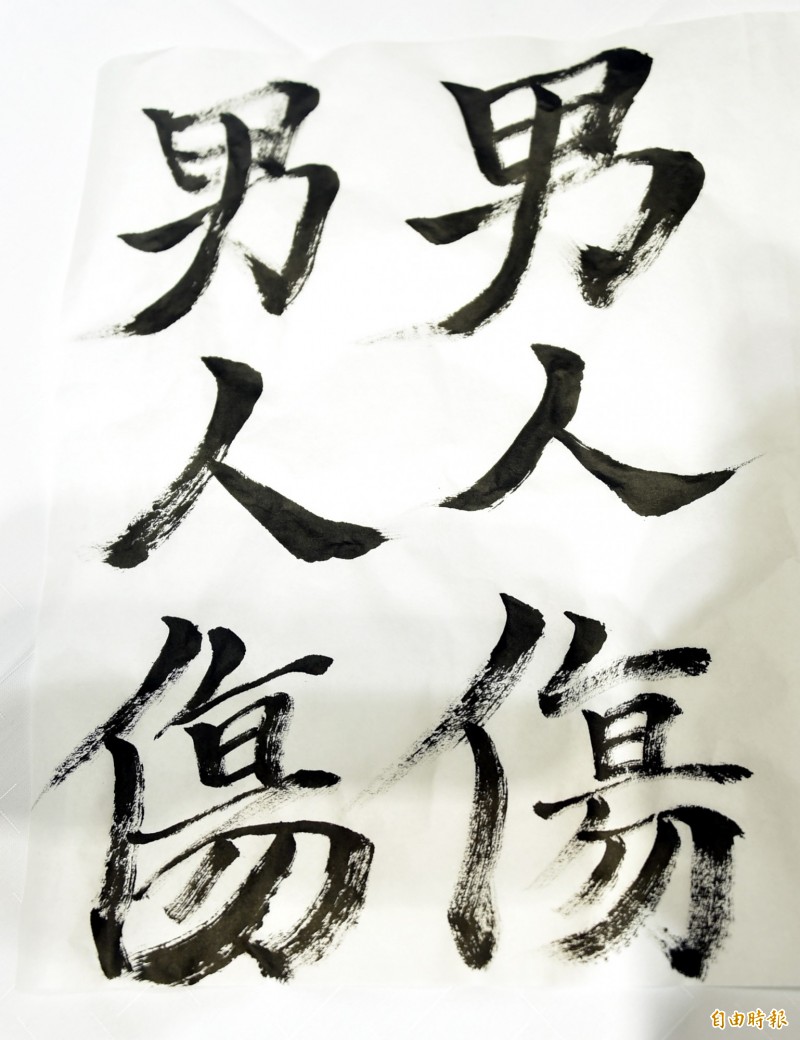 男人傷
男人傷
自由時報